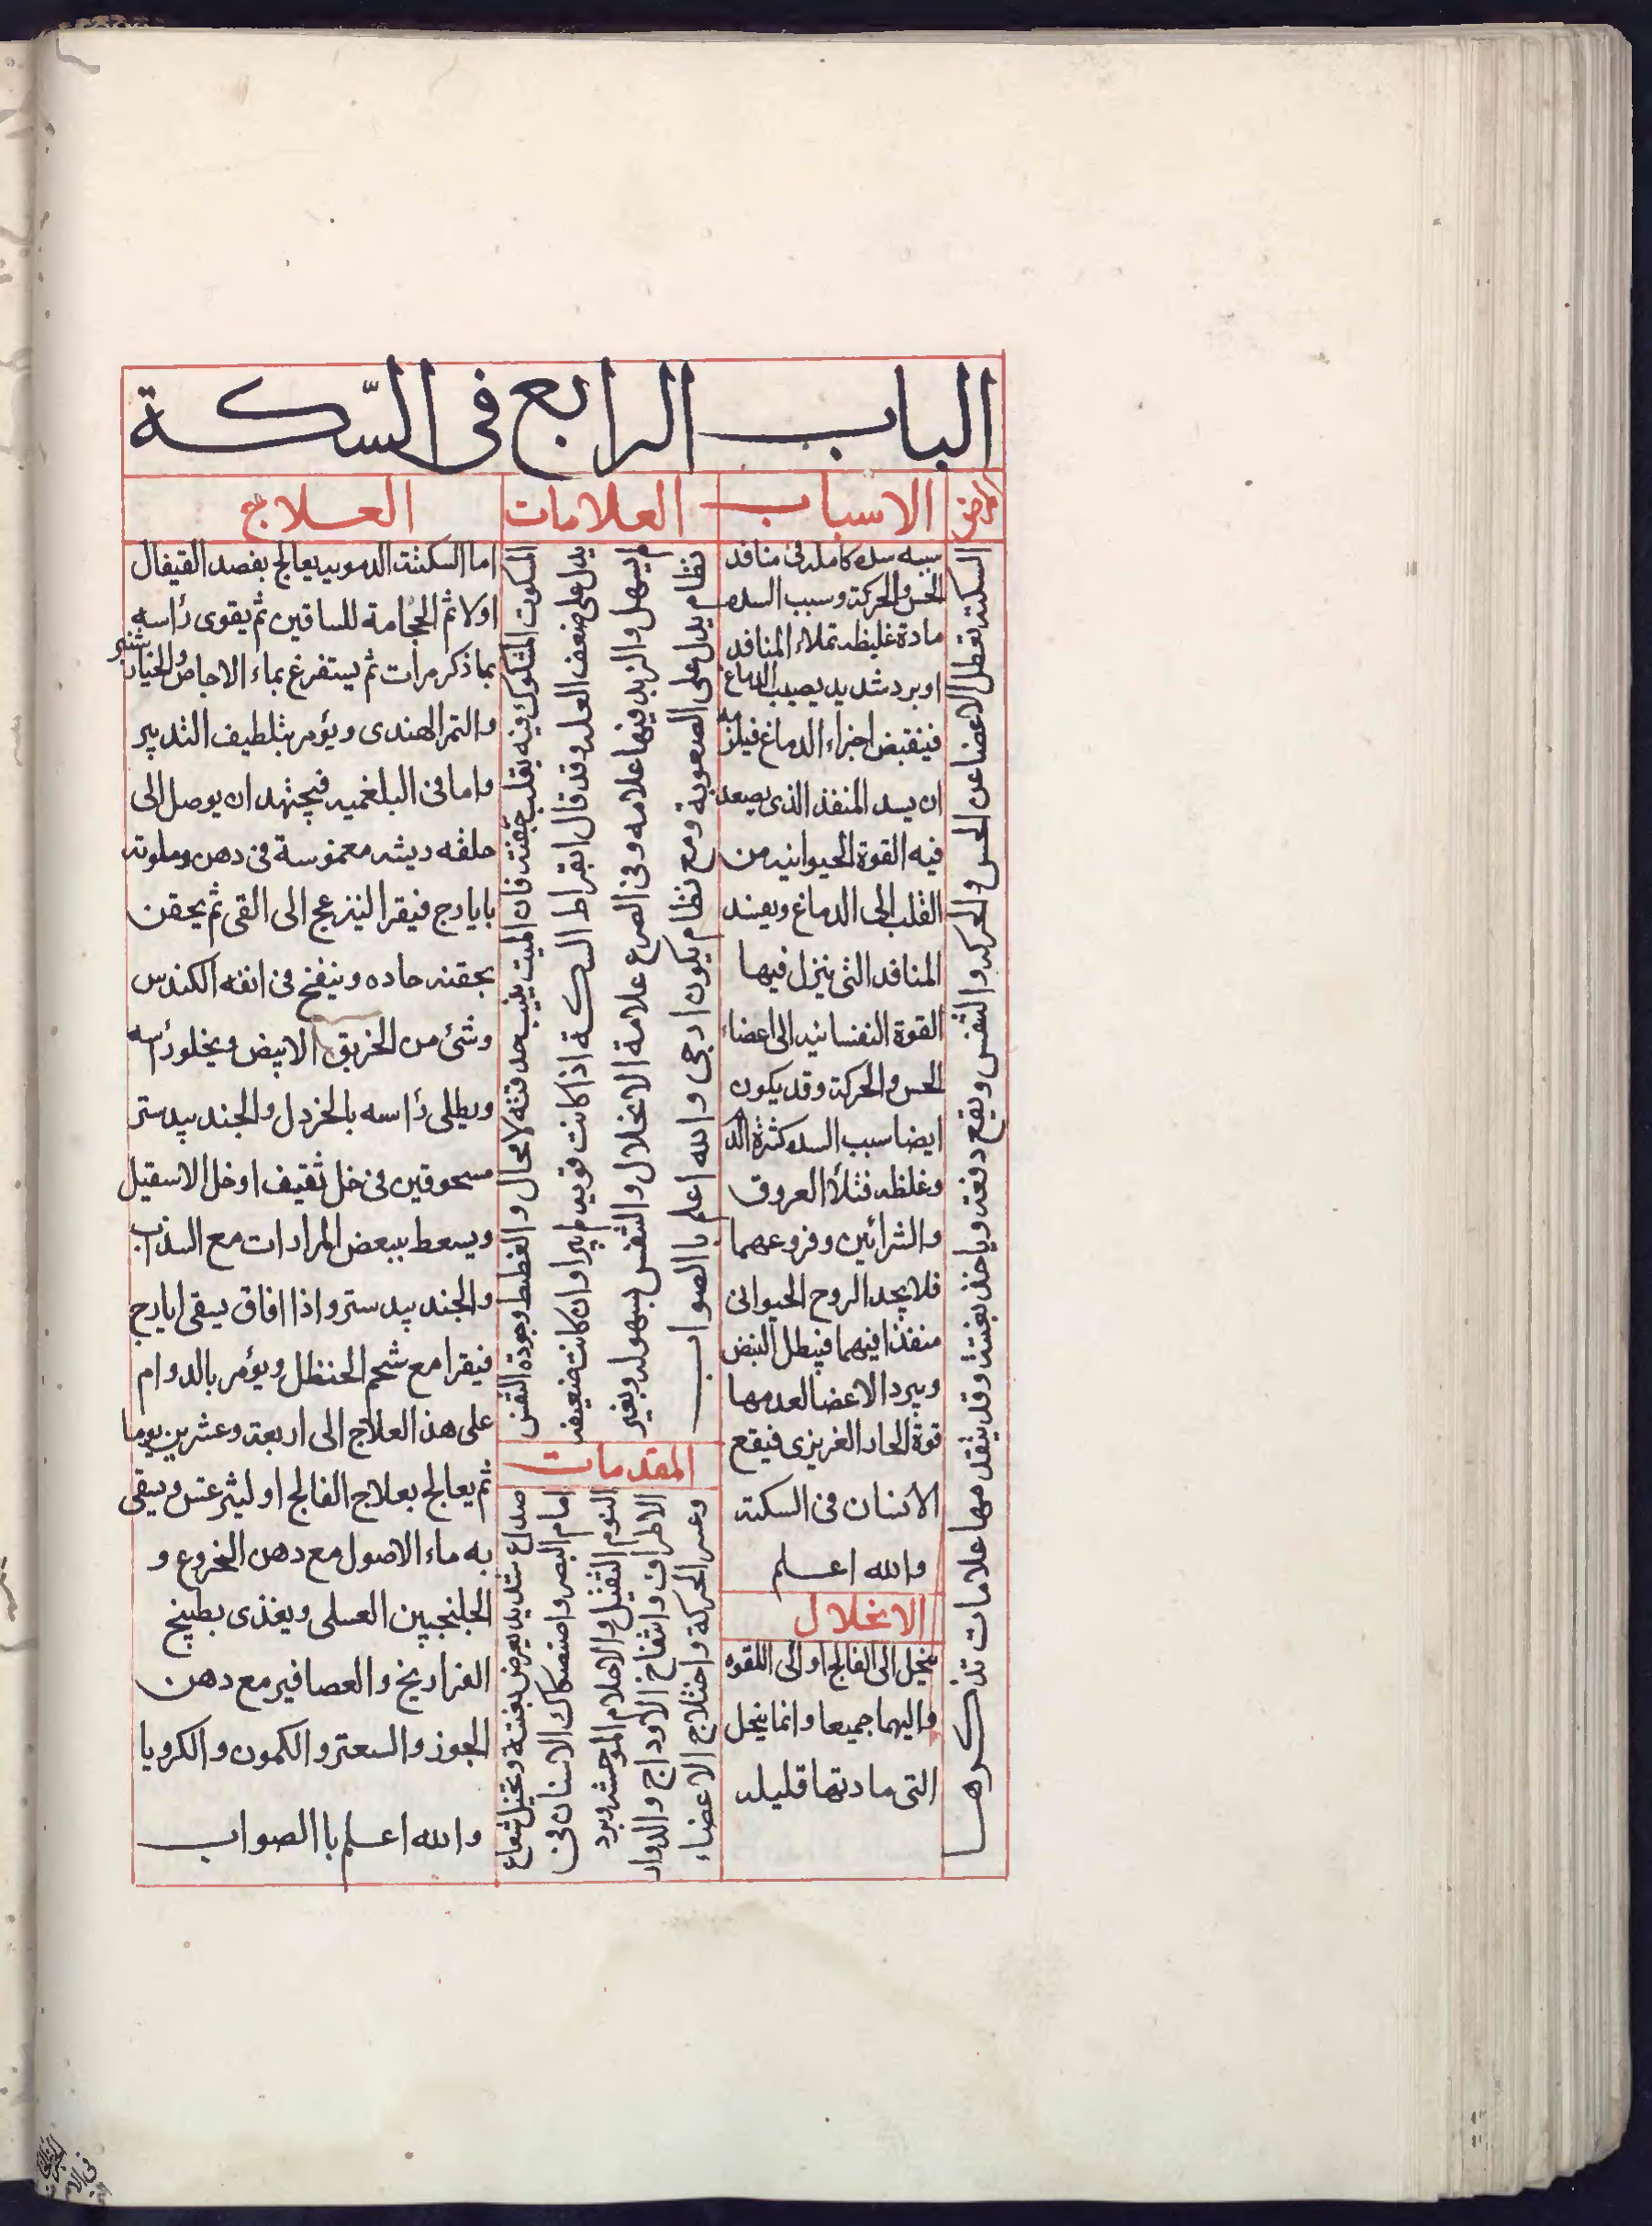 الباب الرابع فى السّكة
المرض
الاسباب
العلامات
العلاج
السكتة تعطل الاعضا عن الحس والحركه والتفس ويقع دفعه وياخذ بغتة وقد يتقدمها علامات تذكرها
سببه سده كامله فى منافد
الحس والحركة وسبب السده
مادة غليظه تملاء المنافد
او برد شديد يصيب الدماغ
فينقبض اجزاء الدماغ فيلزمه
ان يسد المنفذ الذى يصعد
فيه القوة الحيوانيه من
القلب الى الدماغ ويعيند
المنافد التى ينزل فيها
القوة النفسانيه الى اعضاء
الحس والحركة وقد يكون
ايضا سبب السده كثرة الدم
وغلظه فتلأ العروق
والشرائين وفروعهما
فلا يجد الروح الحيوانى
منفذا فيهما فيبطل النبض
ويبرد الاعضا لعدمها
قوة الحار الغريزى فيقع
الانسان فى السكته
والله اعلم
الانحلال
ينحل الى الفالج او الى اللقوه
واليهما جميعا وانما ينحل
التى مادتها قليله
السكوت المشكوك فيه بقلب جفنه فان الميت يغيب حدقته لا محال والغطيط وجودة النفس
يدل على ضعف العله وقد قال ابقراط السكة اذا كانت قويه لم يبرا وان كانت ضعيفه
لم يسهل والزبد فيها علامه وفى الصرع علامة الانحلال والتفس بسهوله وبغير
نظام يدل على الصعوبة ومع نظام يكون ارجى والله اعلم باالصواب
المقدمات
صداع شديد يعرض بغتة وتخيل شعاع
امام البصر واصتصكاك الاسنان فى
النوم الثقيل والاحلام الموحشه وبرد
الاطراف وانتفاخ الاوداج والدوار
وعسر الحركة واختلاج الاعضاء
اما السكتة الدمويه يعالج بفصد القيفال
اولا ثم الحجامة للساقين ثم يقوى رأسه
بما ذكر مرات ثم يستفرغ بماء الاجاص والخيارشنبر
والتمر الهندى ويؤمر بتلطيف التدبير
واما فى البلغميه فيجتهد ان يوصل الى
حلقه ريشه معموسة فى دهن وملوته
بايارج فيقرا لينزعج الى القى ثم يحقن
بحقنه حاده وينفخ فى انفه الكندس
وشئ من الخربق الابيض ويخلو رأسه
ويطلى رأسه بالخردل والجند بيدستر
مسحوقين فى خل ثقيف او خل الاسقيل
ويسعط ببعض المرارات مع السذاب
والجند بيدستر واذا افاق يسقى ايارج
فيقرا مع شحم الحنظل ويؤمر بالدوام
على هذ العلاج الى اربعة وعشرين يوما
ثم يعالج بعلاج الفالج او ليثرعتس ويسقى
به ماء الاصول مع دهن الخروع و
الجلنجبين العسلى ويغذى بطبيخ
الفراريخ والعصافير مع دهن
الجوز والسعتر والكمون والكرويا
والله اعلم باالصواب